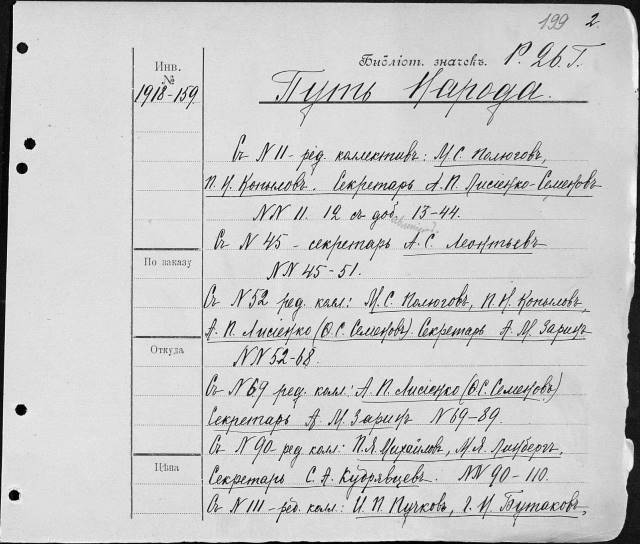 199 2.
Инв.
№
1918-159
Библіот. значекъ. Р. 26. Г.
Путь Народа.
Съ N 11 - ред. коллективъ: М.С. Полюговъ,
П. И. Копыловъ. Секретарь А.П. Лисіенко-Семеновъ
NN 11. 12 съ доб. 13-44.
Съ N 45 - секретарь А. С. Леонтьевъ
NN 45-51.
По заказу
Съ N 52 ред. колл: М.С. Полюговъ, П. И. Копыловъ,
А. П. Лисіенко (О.С. Семеновъ). Секретарь А. М. Заринъ
Откуда
NN 52-68.
Съ N 69 ред. колл: А. П. Лисіенко (О.С. Семеновъ)
Секретарь А. М. Заринъ N 69-89.
Съ N 90 ред. колл: П.Я. Михайловъ, М.Я. Линбергъ,
Цѣна
Секретарь С. А. Кудрявцев. NN 90-110.
Съ N 111 - ред. колл: И. П. Пучковъ, Г. И. Бутаковъ,